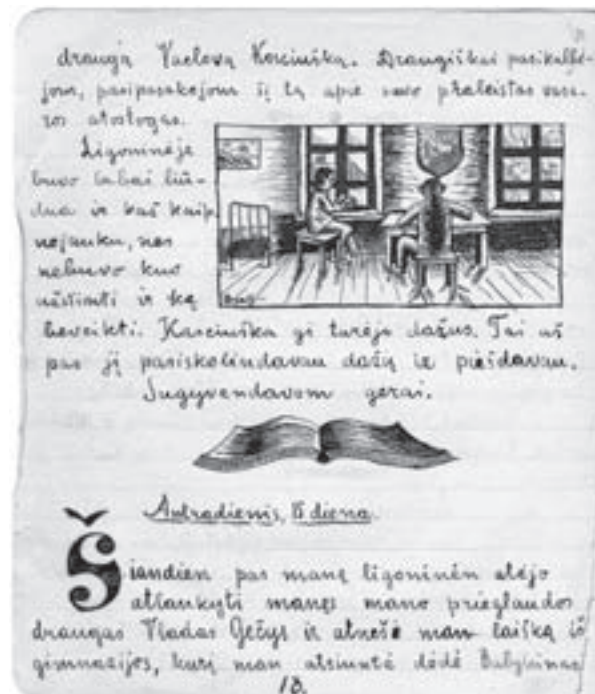 draugą Vaclovą Kosciušką. Draugiškai pasikalbė-
jom, pasipasakojom šį tą apie savo praleistas vasa-
ros atostogas.
Ligoninėje
buvo labai liū-
dna ir kaž kaip
nejauku, nes
nebuvo kuo
užsiimti ir ką
beveikti. Kosciuška gi turėjo dažus. Tai aš
pas jį pasiskolindavau dažų ir piešdavau.
Sugyvendavom gerai.
Antradienis, diena.
Šiandien pas manę ligoninėn atėjo
atlankyti manęs mano prieglaudos
draugas Vladas Gečys ir atnešė man laišką iš
gimnazijos, kurį man atsiuntė dėdė
13.